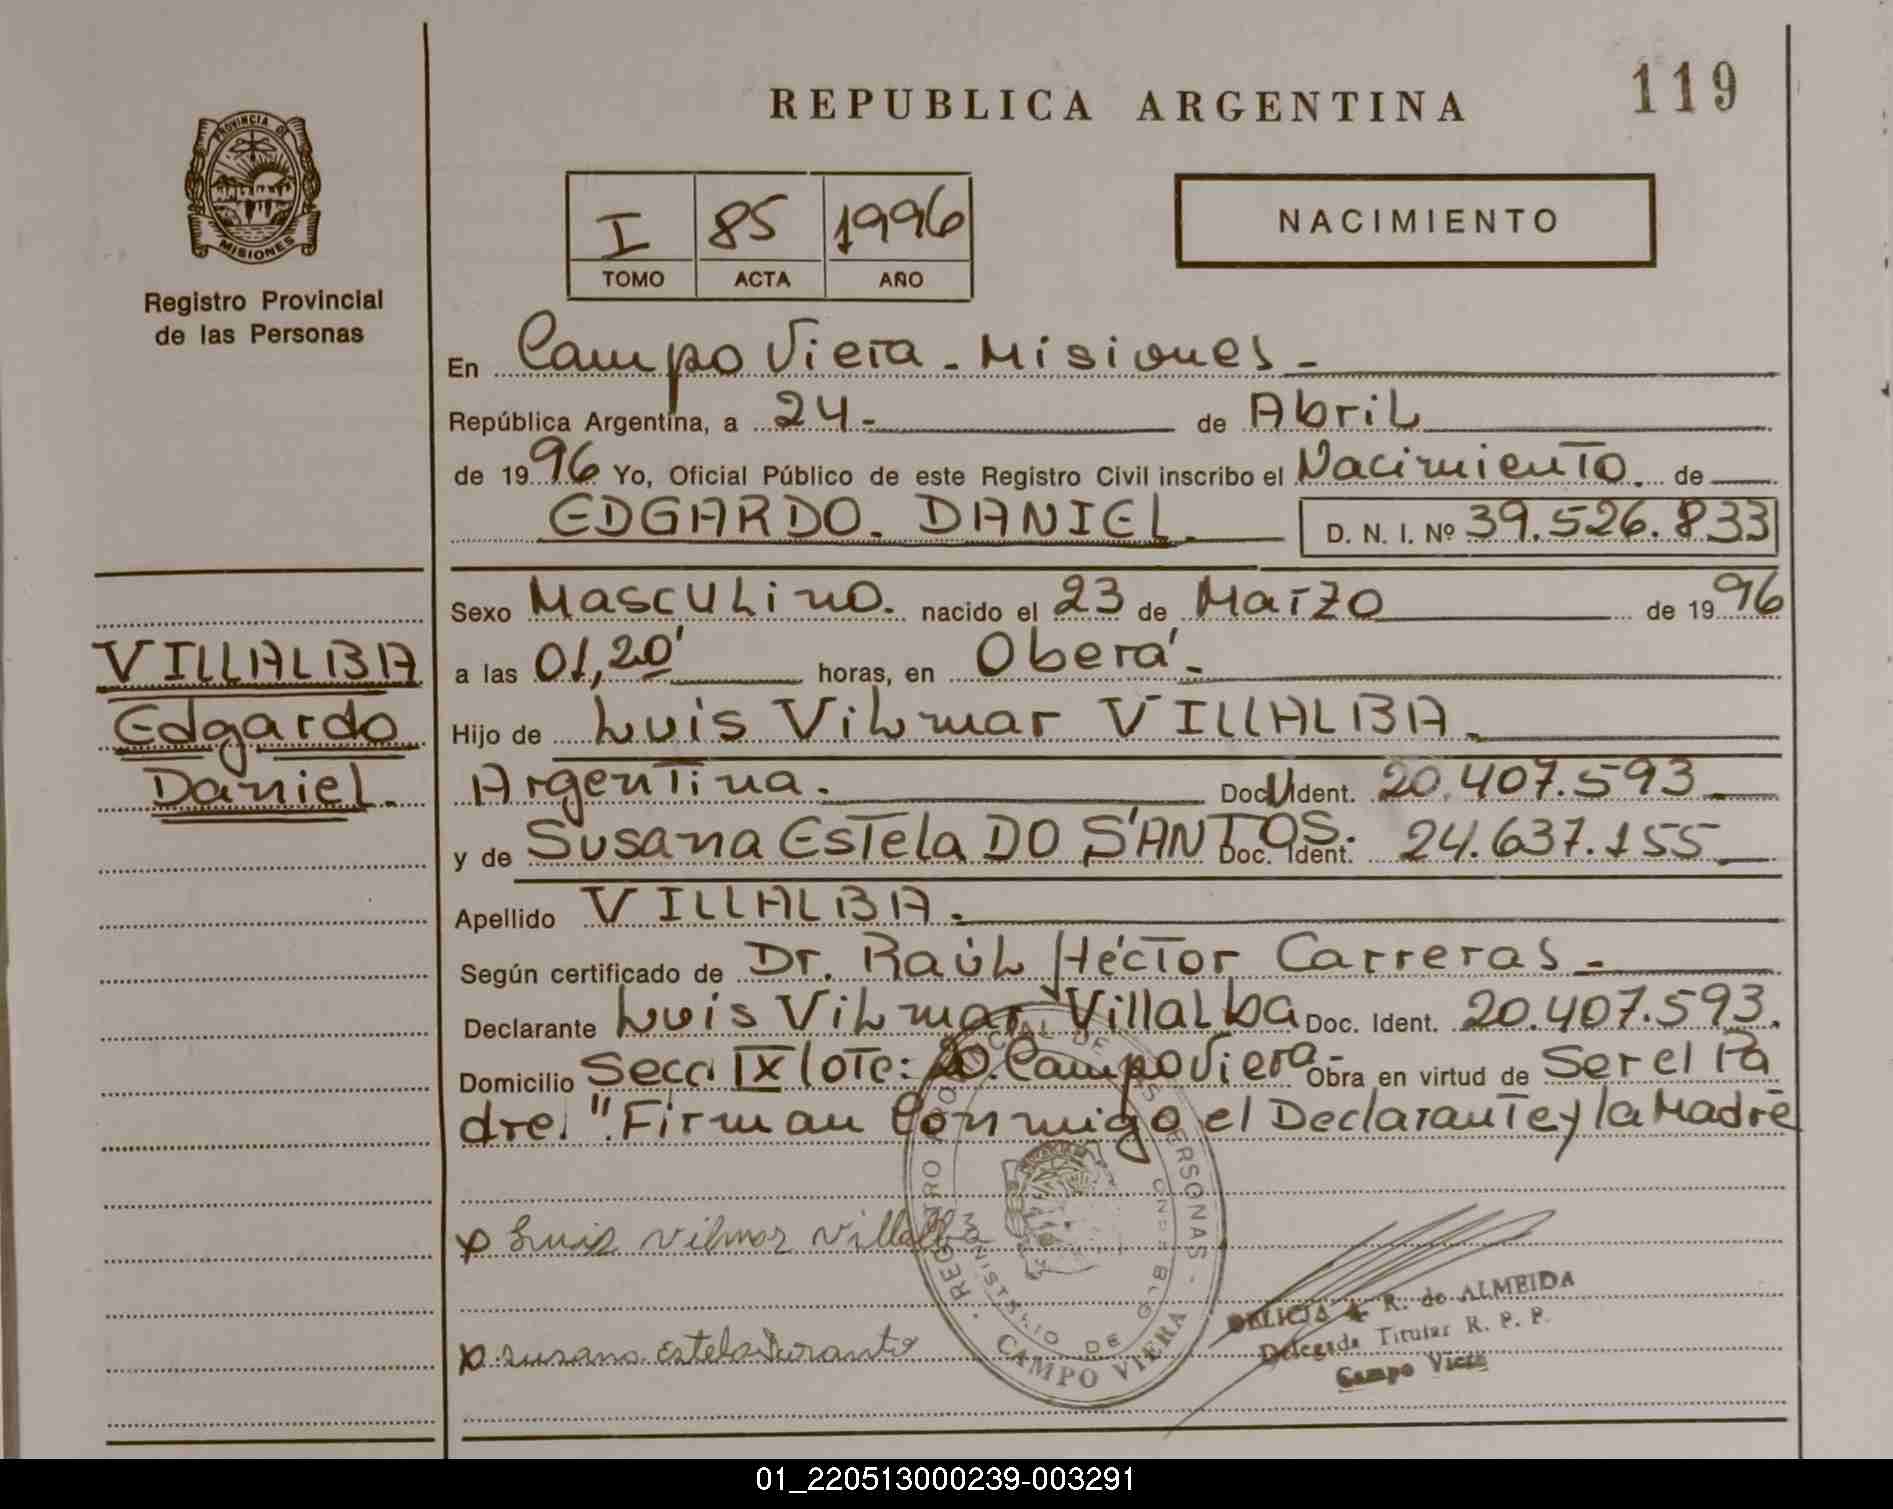 119
REPUBLICA ARGENTINA
PROVINCIA DE
MISIONES
Registro Provincial
de las Personas
I 85 1996
TOMO ACTA AÑO
NACIMIENTO
En Campo Viera - Misiones -
República Argentina, a 24 - de Abril
de 1996 Yo, Oficial Público de este Registro Civil inscribo el Nacimiento. de
EDGARDO. DANIEL D. N. I. Nº 39.526.833
Sexo Masculino. nacido el 23 de Marzo de 1996
a las 01,20' horas, en Oberá -
Hijo de Luis Vilmar VILLALBA.
Argentina. Doc U Ident. 20.407.593
y de Susana Estela DO SANTOS. Doc. Ident. 24.637.155
Apellido VILLALBA.
Según certificado de Dr. Raúl Héctor Carreras -
Declarante Luis Vilmar Villalba Doc. Ident. 20.407.593.
Domicilio Secc. IX lote: Campo Viera - Obra en virtud de Ser el Pa
dre. ". Firman Conmigo el Declarante y la Madre
VILLALBA
Edgardo
Daniel.
x Luis Vilmar Villalba
x susana estela
REGISTRO DE PERSONAS -
MINISTERIO DE GOB
CAMPO VIERA
R. de ALMEIDA
Delegada Titular R. P. P.
Campo Viera
01_220513000239-003291